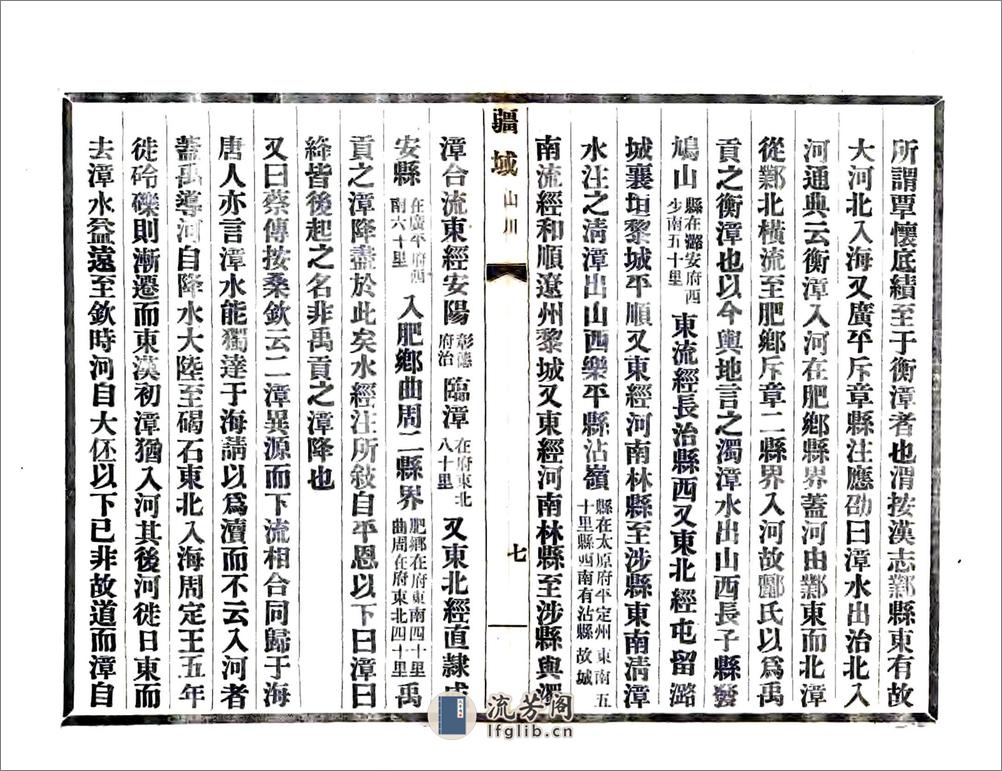 所謂覃懷底績至于衡漳者也渭按漢志鄴縣東有故
大河北入海又廣平斥章縣注應劭曰漳水出治北入
河通典云衡漳入河在肥鄉縣界蓋河由鄴東而北漳
從鄴北橫流至肥鄉斥章二縣界入河故酈氏以爲禹
貢之衡漳也以今輿地言之濁漳水出山西長子縣發
鳩山縣在潞安府西少南五十里東流經長治縣西又東北經屯留潞
城襄垣黎城平順又東經河南林縣至涉縣東南淸漳
水注之淸漳出山西樂平縣沾嶺縣在太原府平定州東南五十里縣西南有沾縣故城
南流經和順遼州黎城又東經河南林縣至涉縣與濁
疆域山川
七
漳合流東經安陽彰德府治臨漳在府東北八十里又東北經直隸成
安縣在廣平府西南六十里入肥鄉曲周二縣界肥鄉在府東南四十里曲周在府東北四十里禹
貢之漳降盡於此矣水經注所敍自平恩以下曰漳曰
絳皆後起之名非禹貢之漳降也
又曰蔡傳按桑欽云二漳異源而下流相合同歸于海
唐人亦言漳水能獨達于海請以爲瀆而不云入河者
蓋禹導河自降水大陸至碣石東北入海周定王五年
徙砱礫則漸遷而東漢初漳猶入河其後河徙日東而
去漳水益遠至欽時河自大伾以下已非故道而漳自
流芳阁
lfglib.cn